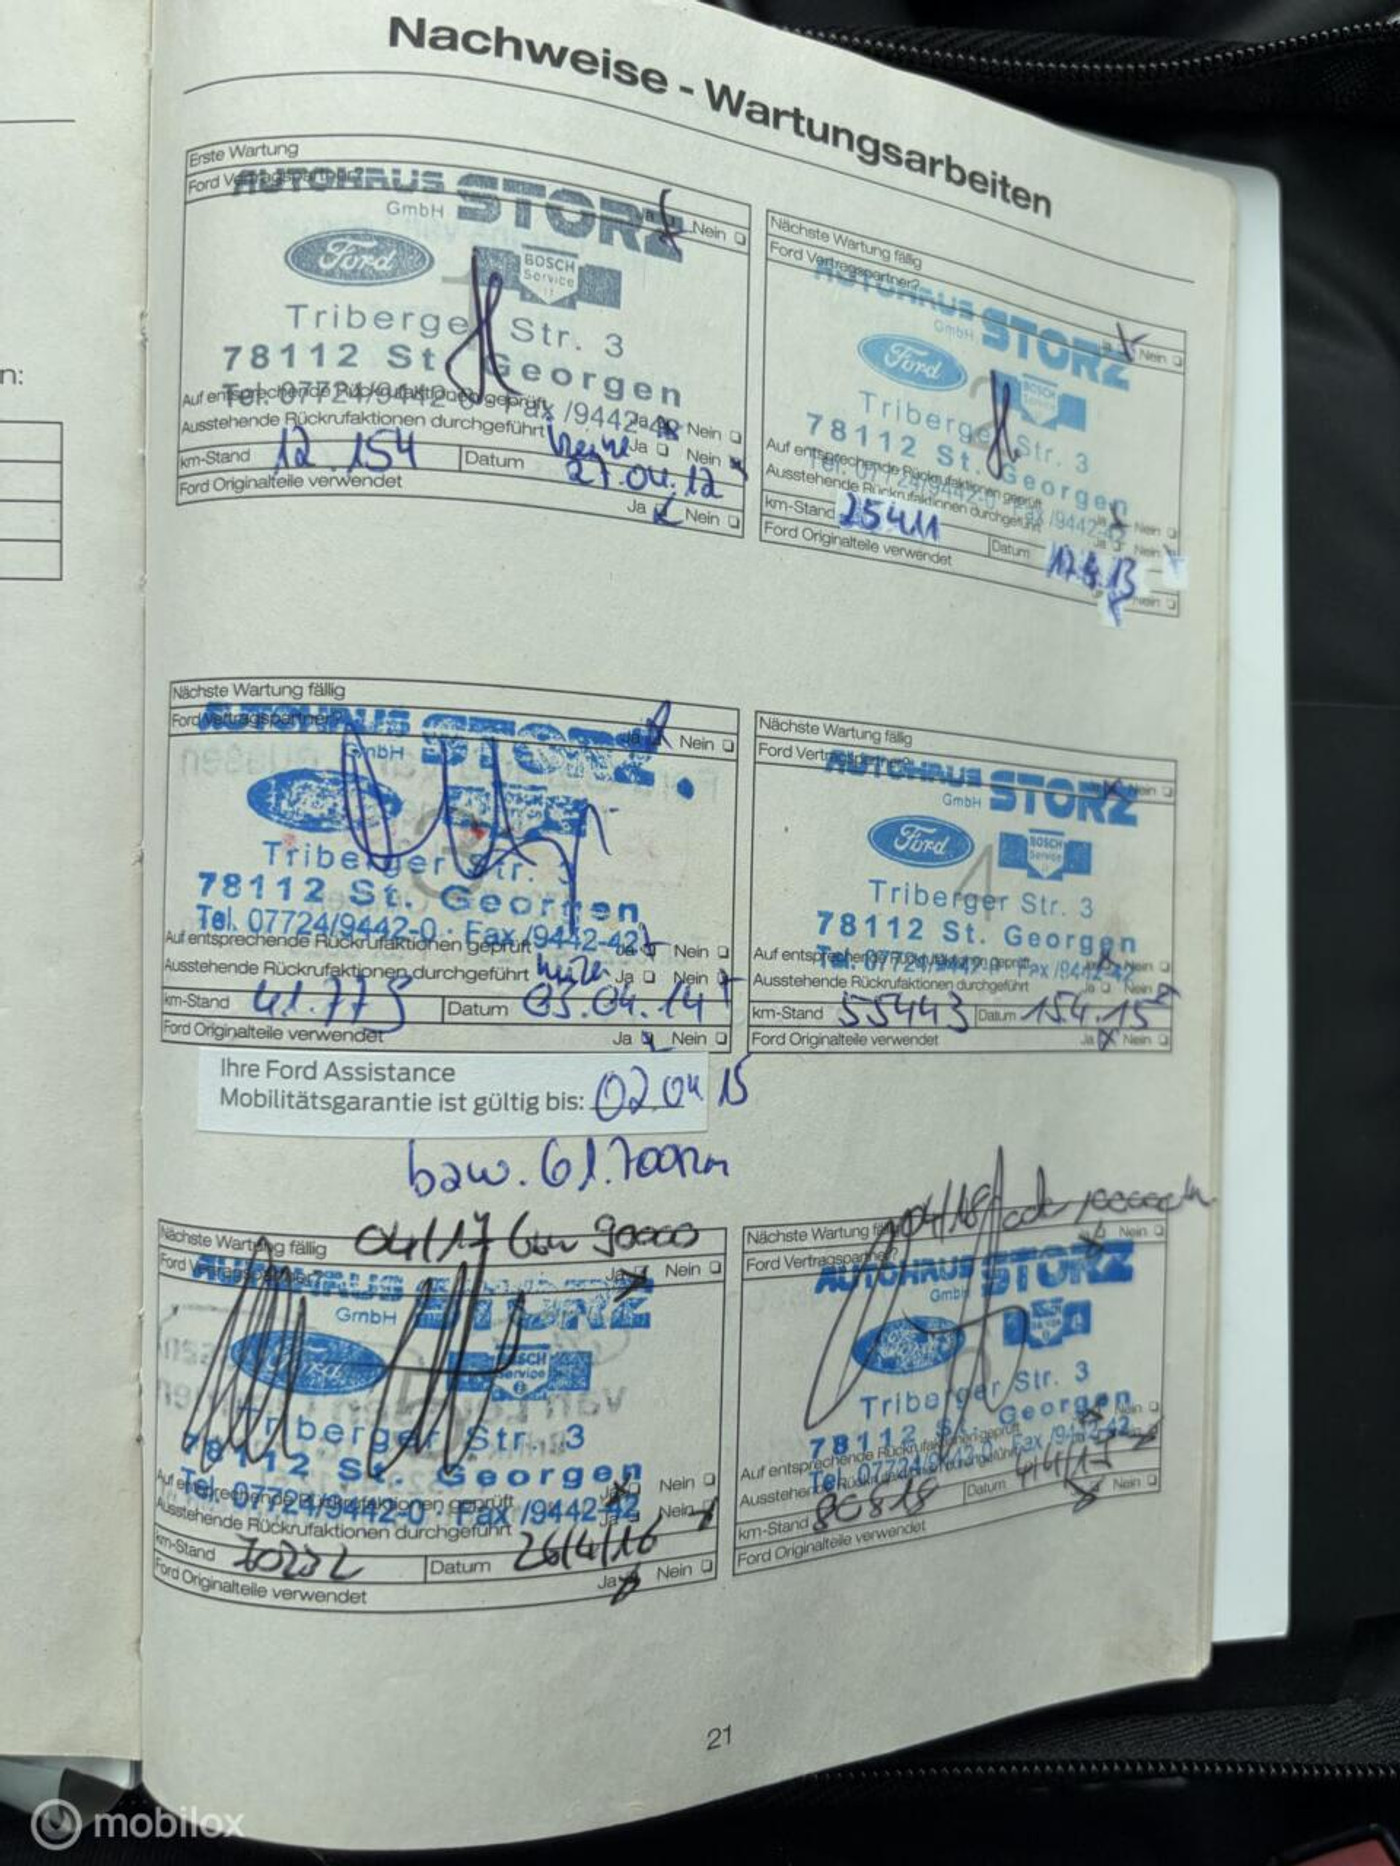 n:
Nachweise - Wartungsarbeiten
Erste Wartung
Ford Vertragspartner? Ja Nein
AUTOHAUS STORZ
GmbH
Ford BOSCH Service
Triberger Str. 3
78112 St. Georgen
Tel. 07724/9442-0 · Fax /9442-42
Auf entsprechende Rückrufaktionen geprüft Ja Nein
Ausstehende Rückrufaktionen durchgeführt keine Ja Nein
km-Stand 12.154 Datum 27.04.12
Ford Originalteile verwendet
Ja Nein
Nächste Wartung fällig
Ford Vertragspartner?
Ja Nein
AUTOHAUS STORZ
GmbH
Ford BOSCH Service
Triberger Str. 3
78112 St. Georgen
Tel. 07724/9442-0 · Fax /9442-42
Auf entsprechende Rückrufaktionen geprüft Ja Nein
Ausstehende Rückrufaktionen durchgeführt Ja Nein
km-Stand 25411 Datum
Ford Originalteile verwendet
Nein
Nächste Wartung fällig
Ford Vertragspartner? Ja Nein
AUTOHAUS STORZ
GmbH
Triberger Str. 3
78112 St. Georgen
Tel. 07724/9442-0 · Fax /9442-42
Auf entsprechende Rückrufaktionen geprüft Ja Nein
Ausstehende Rückrufaktionen durchgeführt keine Ja Nein
km-Stand 41.775 Datum 03.04.14
Ford Originalteile verwendet Ja Nein
Ihre Ford Assistance
Mobilitätsgarantie ist gültig bis: 02.04.15
bzw. 61.700km
Nächste Wartung fällig
Ford Vertragspartner?
Nein
AUTOHAUS STORZ
GmbH
Ford BOSCH Service
Triberger Str. 3
78112 St. Georgen
Tel. 07724/9442-0 · Fax /9442-42
Auf entsprechende Rückrufaktionen geprüft Ja Nein
Ausstehende Rückrufaktionen durchgeführt Ja Nein
km-Stand 55443 Datum 15.4.15
Ford Originalteile verwendet Ja Nein
Nächste Wartung fällig 04/17 bzw 90000
Ford Vertragspartner? Ja Nein
AUTOHAUS STORZ
GmbH
Ford BOSCH Service
Triberger Str. 3
78112 St. Georgen
Tel. 07724/9442-0 · Fax /9442-42
Auf entsprechende Rückrufaktionen geprüft Ja Nein
Ausstehende Rückrufaktionen durchgeführt Ja Nein
km-Stand 70232 Datum 26/4/16
Ford Originalteile verwendet Ja Nein
Nächste Wartung fällig 04/18
Ford Vertragspartner? Nein
AUTOHAUS STORZ
GmbH
Triberger Str. 3
78112 St. Georgen
Tel. 07724/9442-0 · Fax /9442-42
Auf entsprechende Rückrufaktionen geprüft Nein
Ausstehende Rückrufaktionen durchgeführt
km-Stand 80818 Datum 4/4/17
Ford Originalteile verwendet Nein
21
mobilox